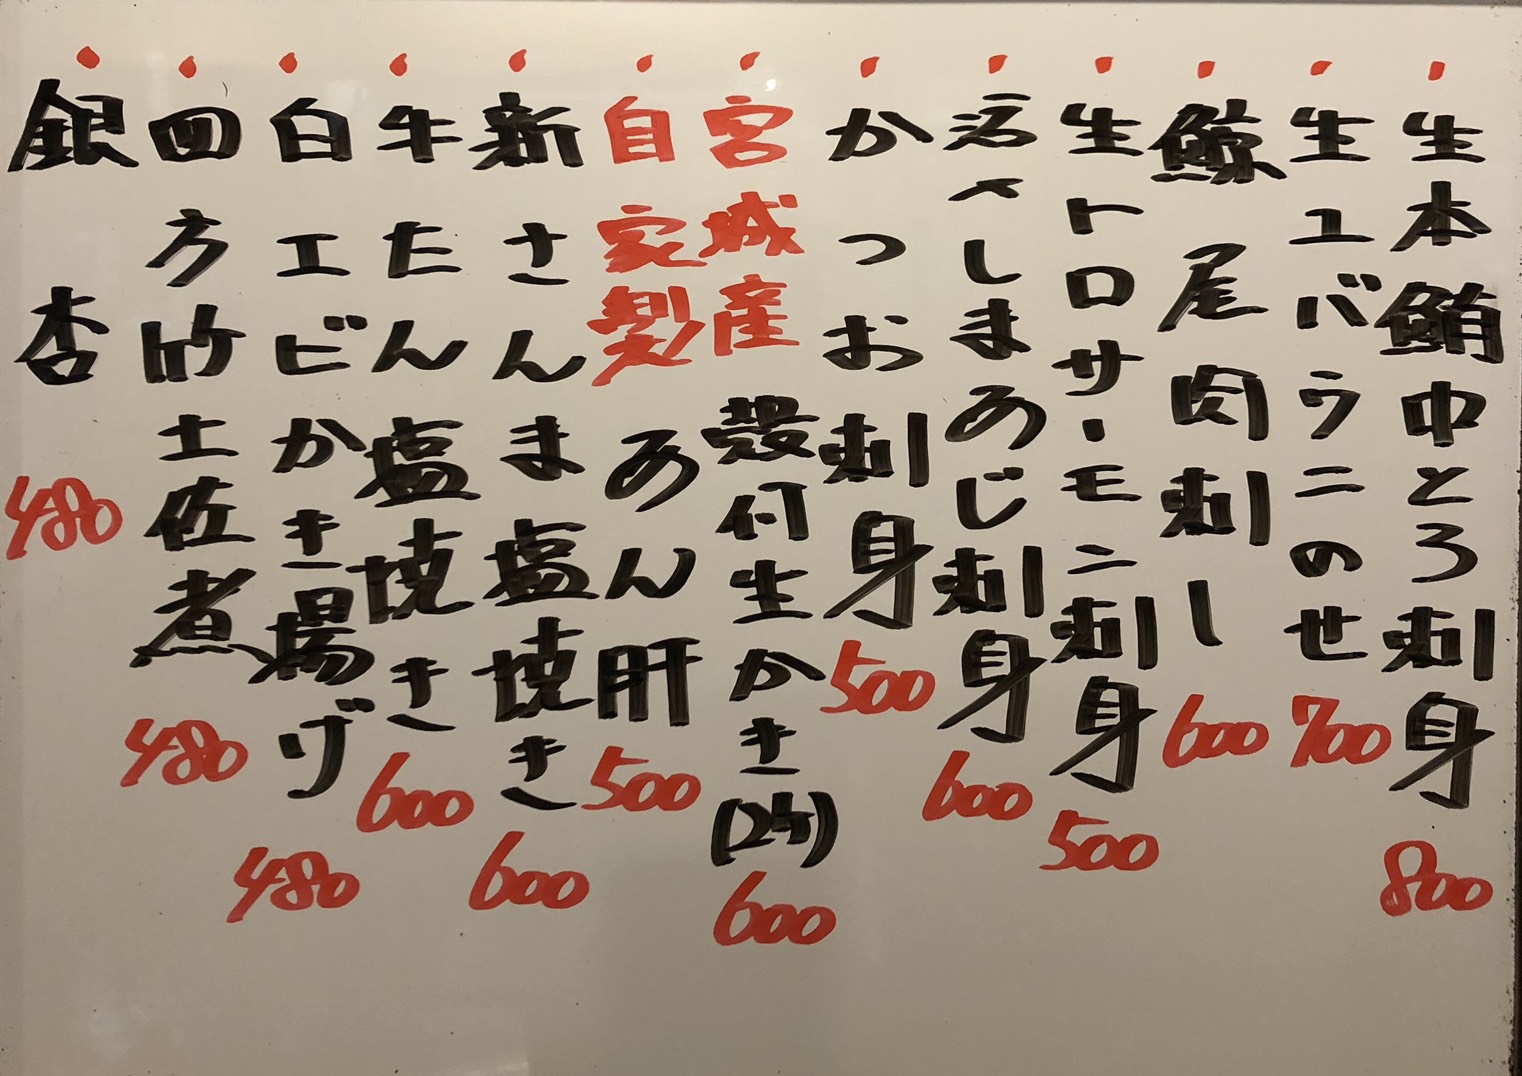 生本鮪中とろ刺身 800
生ユバウニのせ 700
鯨尾肉刺し 600
生トロサーモン刺身 500
活〆しまあじ刺身 600
かつお刺身 500
宮城産殻付生かき(2ヶ) 600
自家製あん肝 500
新さんま塩焼き 600
牛たん塩焼き 600
白エビかき揚げ 480
四方竹土佐煮 480
銀杏 480